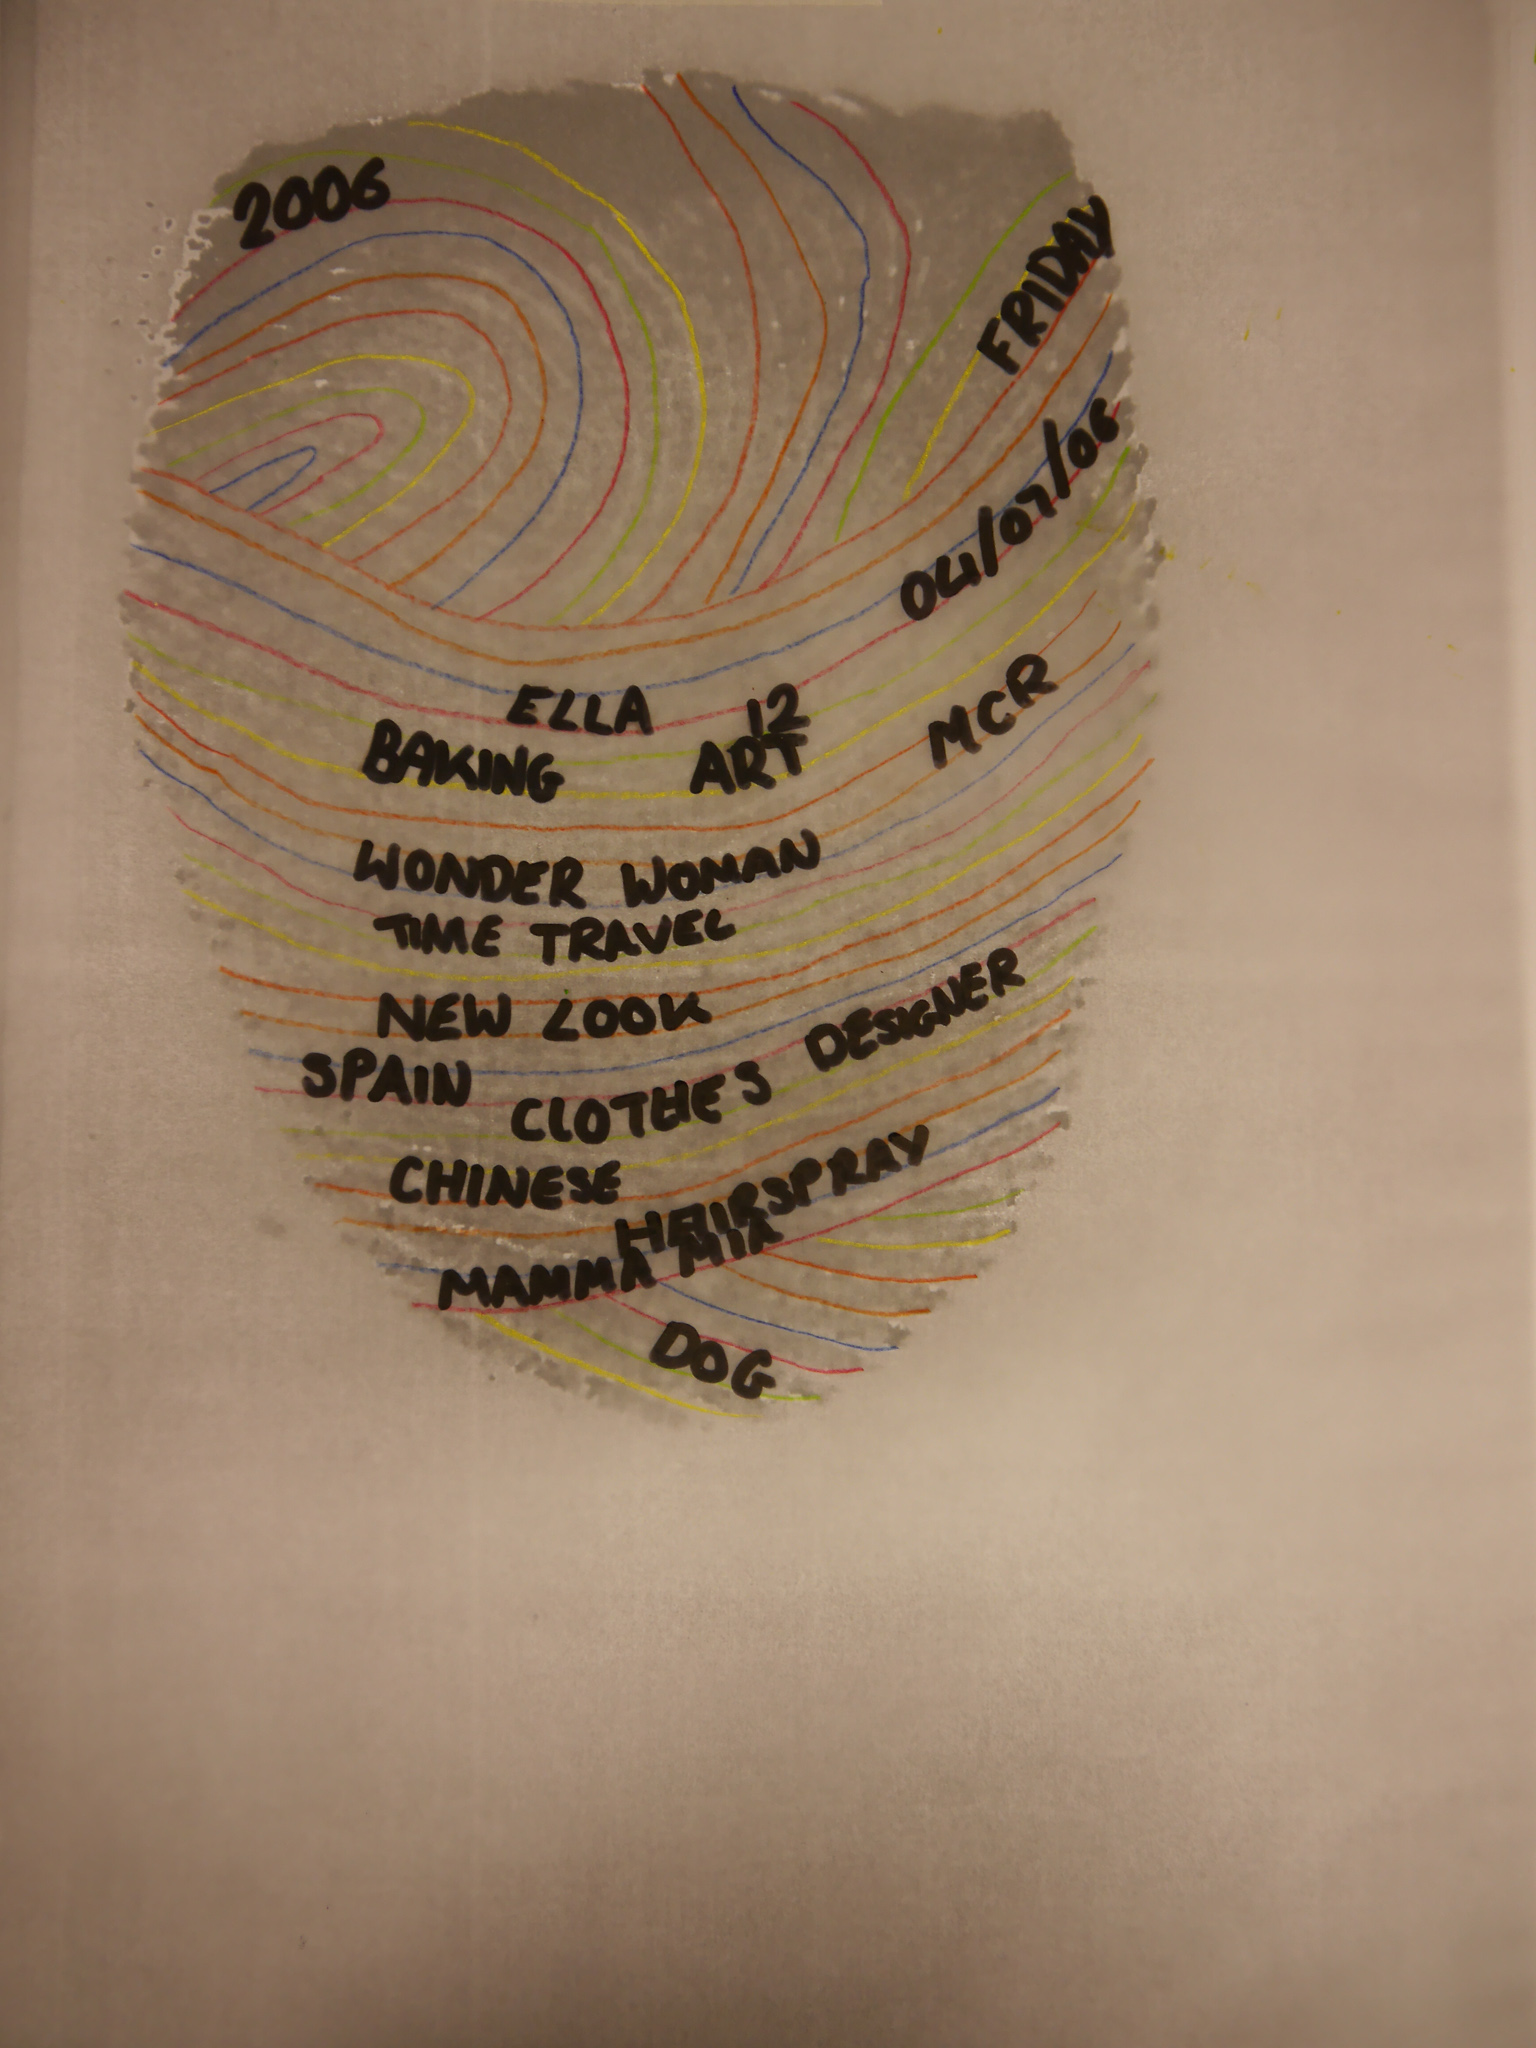 2006
FRIDAY
04/07/06
ELLA 12
BAKING ART
MCR
WONDER WOMAN
TIME TRAVEL
NEW LOOK
SPAIN
CLOTHES DESIGNER
CHINESE
HAIRSPRAY
MAMMA MIA
DOG